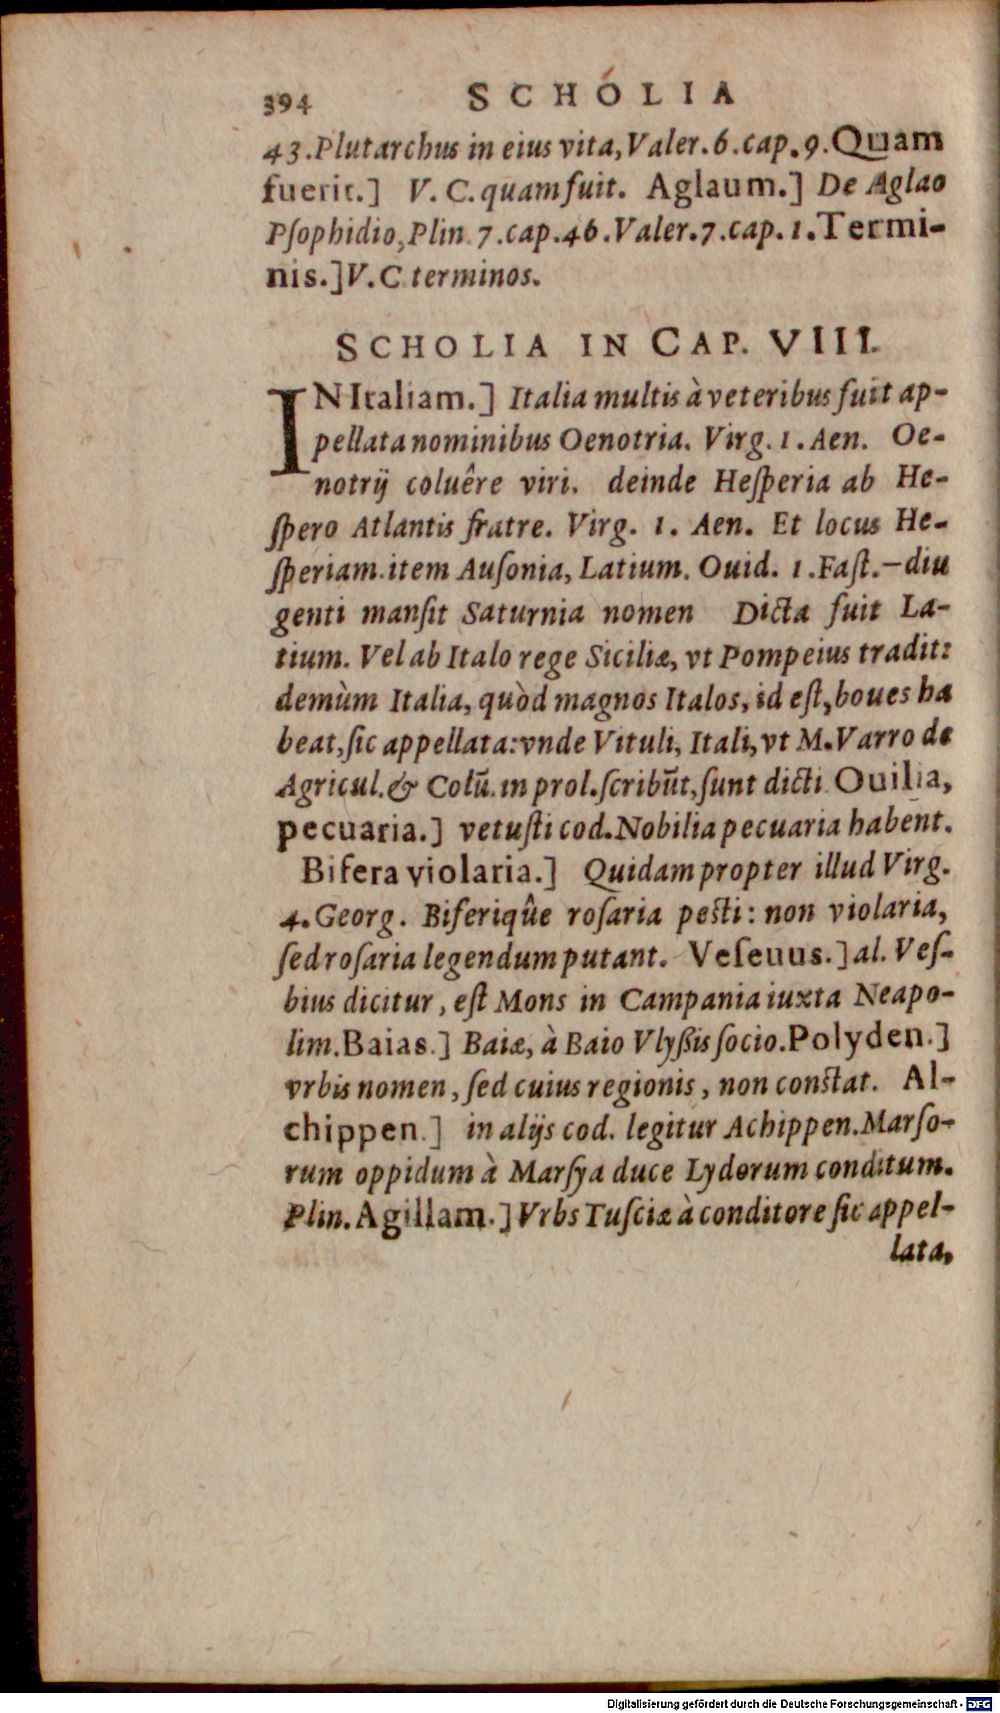 394 SCHOLIA
43. Plutarchus in eius vita, Valer. 6. cap. 9. Quam
fuerit.] V. C. quam fuit. Aglaum.] De Aglao
Pſophidio, Plin. 7. cap. 46. Valer. 7. cap. 1. Termi-
nis.] V. C terminos.
SCHOLIA IN CAP. VIII.
IN Italiam.] Italia multis à veteribus fuit ap-
pellata nominibus Oenotria. Virg. 1. Aen. Oe-
notrij coluêre viri. deinde Heſperia ab He-
ſpero Atlantis fratre. Virg. 1. Aen. Et locus He-
ſperiam. item Auſonia, Latium. Ouid. 1. Faſt. — diu
genti manſit Saturnia nomen Dicta fuit La-
tium. Vel ab Italo rege Siciliæ, vt Pompeius tradit:
demùm Italia, quòd magnos Italos, id eſt, boues ha
beat, ſic appellata: vnde Vituli, Itali, vt M. Varro de
Agricul. & Colū. in prol. ſcribūt, ſunt dicti Ouilia,
pecuaria.] vetuſti cod. Nobilia pecuaria habent.
Bifera violaria.] Quidam propter illud Virg.
4. Georg. Biferiqûe roſaria peſti: non violaria,
ſed roſaria legendum putant. Veſeuus.] al. Veſ-
bius dicitur, eſt Mons in Campania iuxta Neapo-
lim. Baias.] Baiæ, à Baio Vlyßis ſocio. Polyden.]
vrbis nomen, ſed cuius regionis, non conſtat. Al-
chippen.] in alijs cod. legitur Achippen. Marſo-
rum oppidum à Marſya duce Lydorum conditum.
Plin. Agillam.] Vrbs Tuſciæ à conditore ſic appel-
lata,
Digitalisierung gefördert durch die Deutsche Forschungsgemeinschaft - DFG